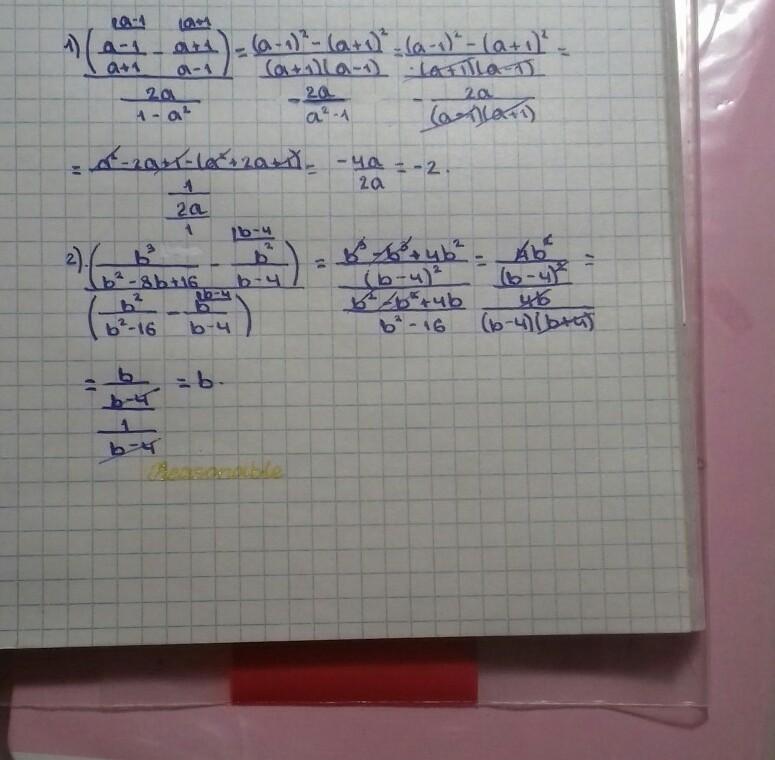 |a-1 |a+1
1) (a-1/a+1 - a+1/a-1) / (2a/1-a²) = ((a-1)²-(a+1)²/(a+1)(a-1)) / (-2a/a²-1) = ((a-1)²-(a+1)²/(a+1)(a-1)) / (-2a/(a-1)(a+1)) =
= (a²-2a+1-(a²+2a+1)/1) / (2a/1) = -4a/2a = -2.
|b-4
2). (b³/b²-8b+16 - b²/b-4) / (b²/b²-16 - b/b-4 |b-4) = (b³-b³+4b²/(b-4)²) / (b²-b²+4b/b²-16) = (4b²/(b-4)²) / (4b/(b-4)(b+4)) =
= (b/b-4) / (1/b-4) = b.
Reasonable